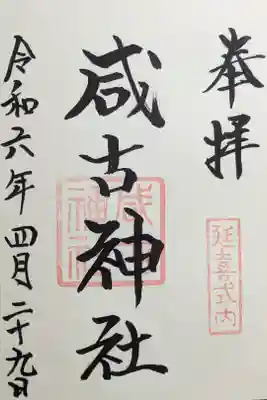 奉拝
延喜式内
咸古神社
令和六年四月二十九日